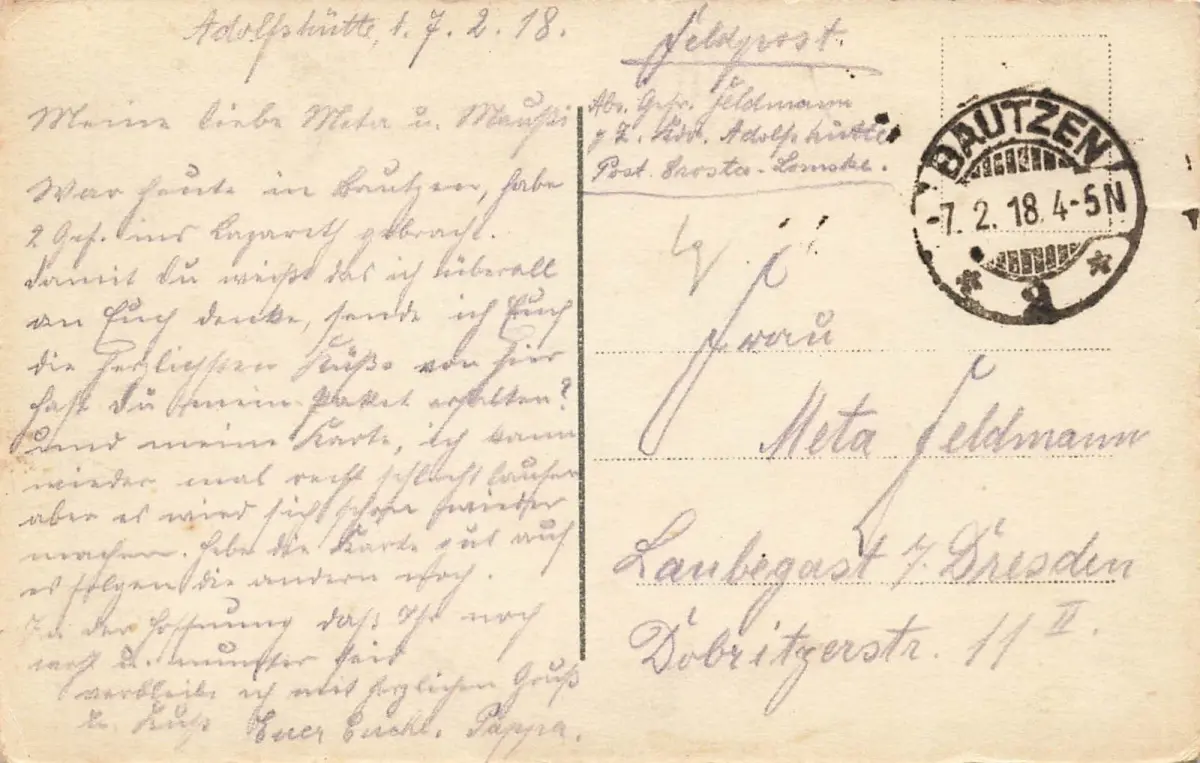 Adolfshütte, d. 7. 2. 18.
Meine liebe Meta u. Mausi
War heute in Bautzen, habe
2 Gef. ins Lazareth gebracht.
damit Du weißt das ich überall
an Euch denke, sende ich Euch
die herzlichsten Küße von hier
hast Du mein Paket erhalten?
und meine Karte, ich kann
wieder mal recht schlecht laufen
aber es wird sich schon wieder
machen. hebe die Karte gut auf
es folgen die andern noch.
In der Hoffnung daß Ihr noch
wohl u. munter seid
verbleibe ich mit herzlichen Gruß
u. Kuß Euer Pappa.
Feldpost.
Abs. Gefr. Feldmann
Kdo. Adolfshütte
Post. Crosta-Lomske.
BAUTZEN
-7. 2. 18. 4-5N
* a *
Frau
Meta Feldmann
Laubegast b/ Dresden
Dobritzerstr. 11 II.